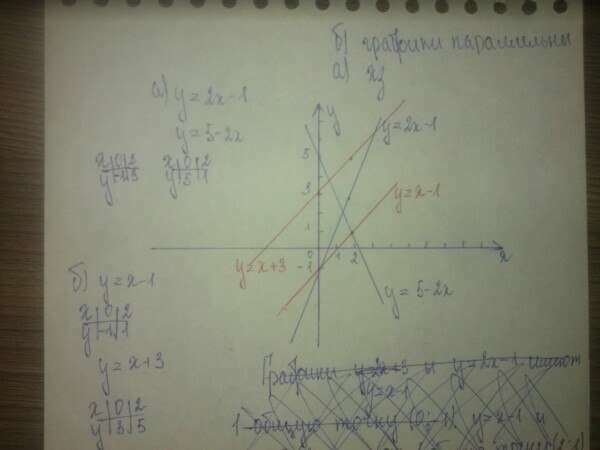 б) графики параллельны
а) хз
а) y = 2x-1
y = 5-2x
x 0 2
y -1 3
x 0 2
y 5 1
y
y=2x-1
5
3
y=x-1
1
0 1 2
x
y=x+3
-1
y = 5-2x
б) y = x-1
x 0 2
y -1 1
y = x+3
x 0 2
y 3 5
Графики y=x+3 и y=2x-1 имеют
y=x-1
1 общую точку (0; -1) y=x-1 и